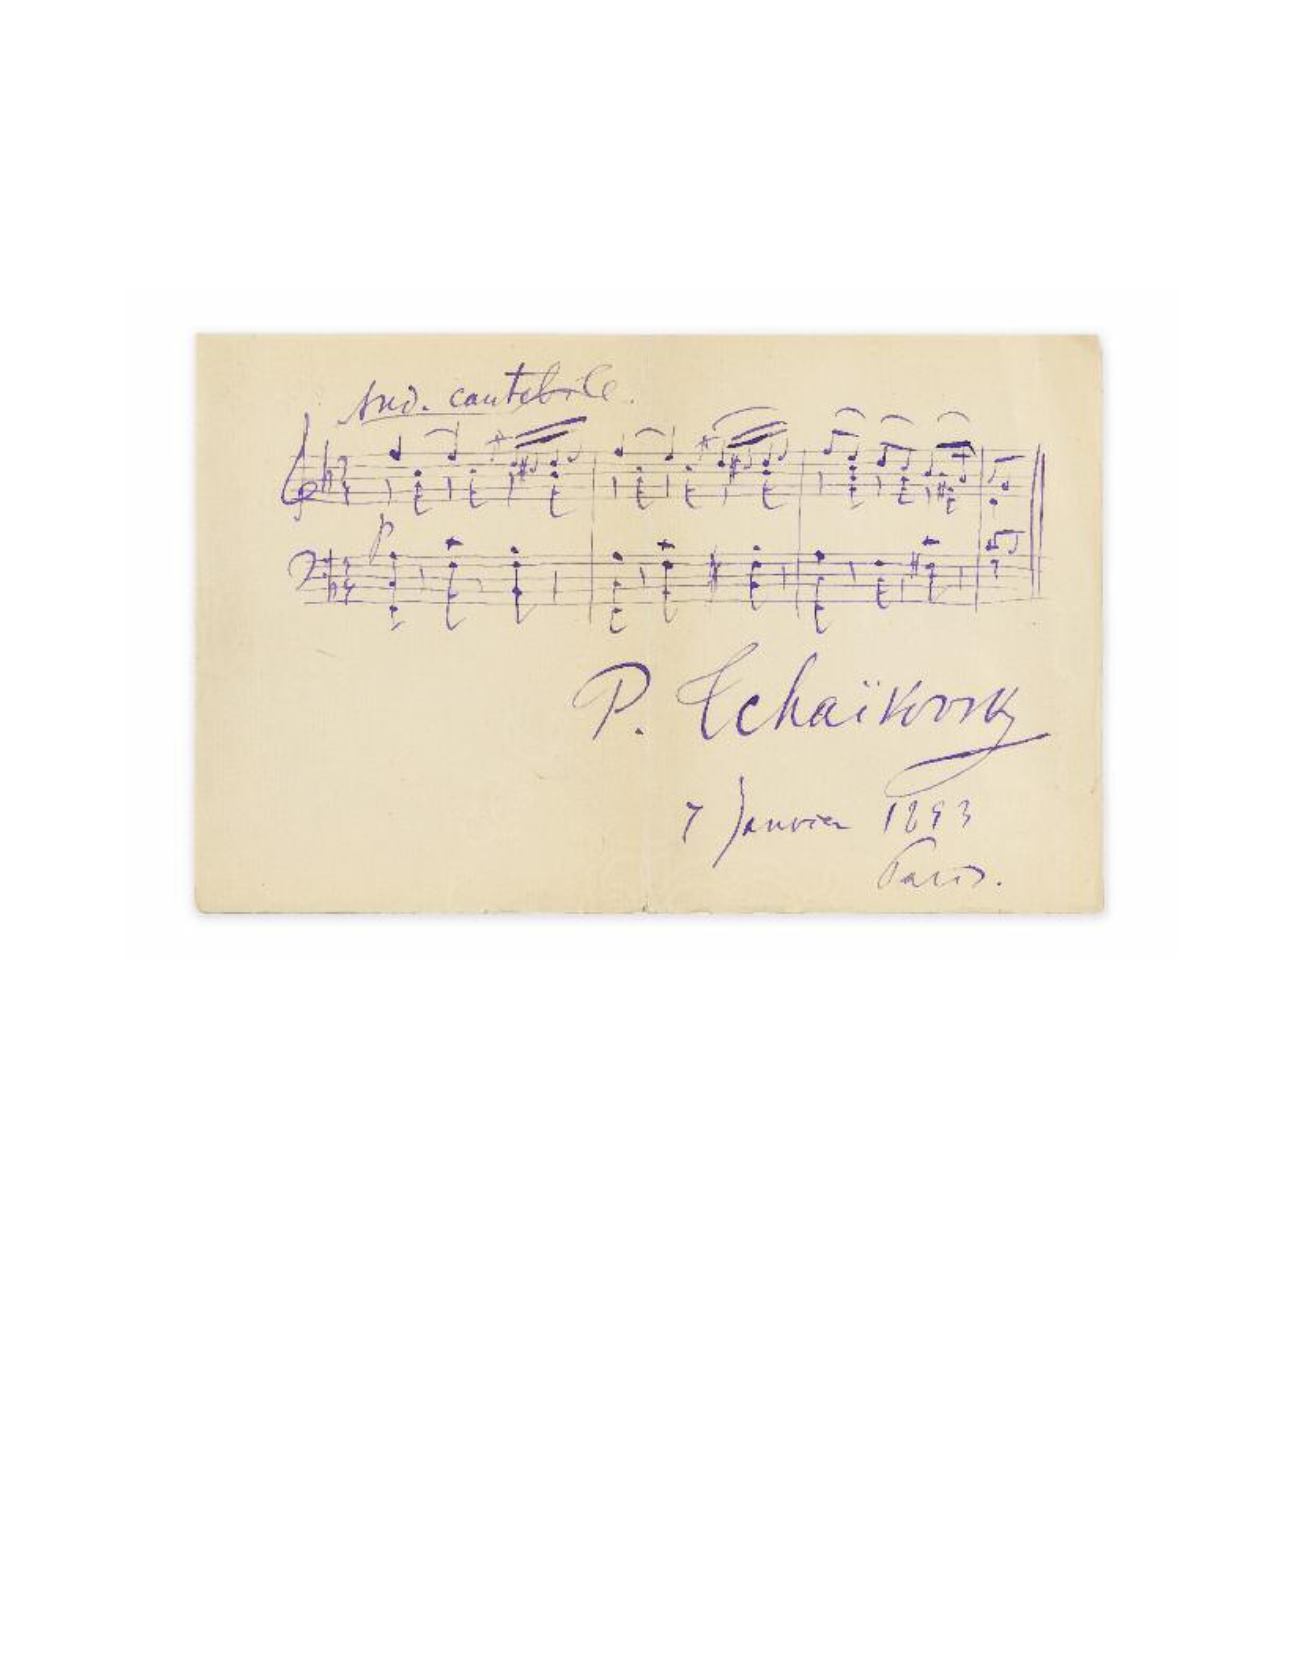 And. cantabile.
p
P. Tchaïkovsky
7 Janvier 1893
Paris.